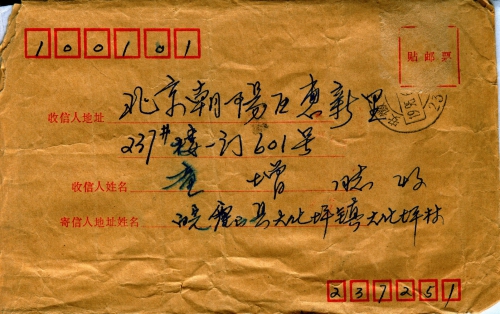 100101
贴邮票
收信人地址 北京朝陽区惠新里
237#楼一门601号
收信人姓名 童 增 收
寄信人地址姓名 皖霍山县大化坪镇大化坪村
237251